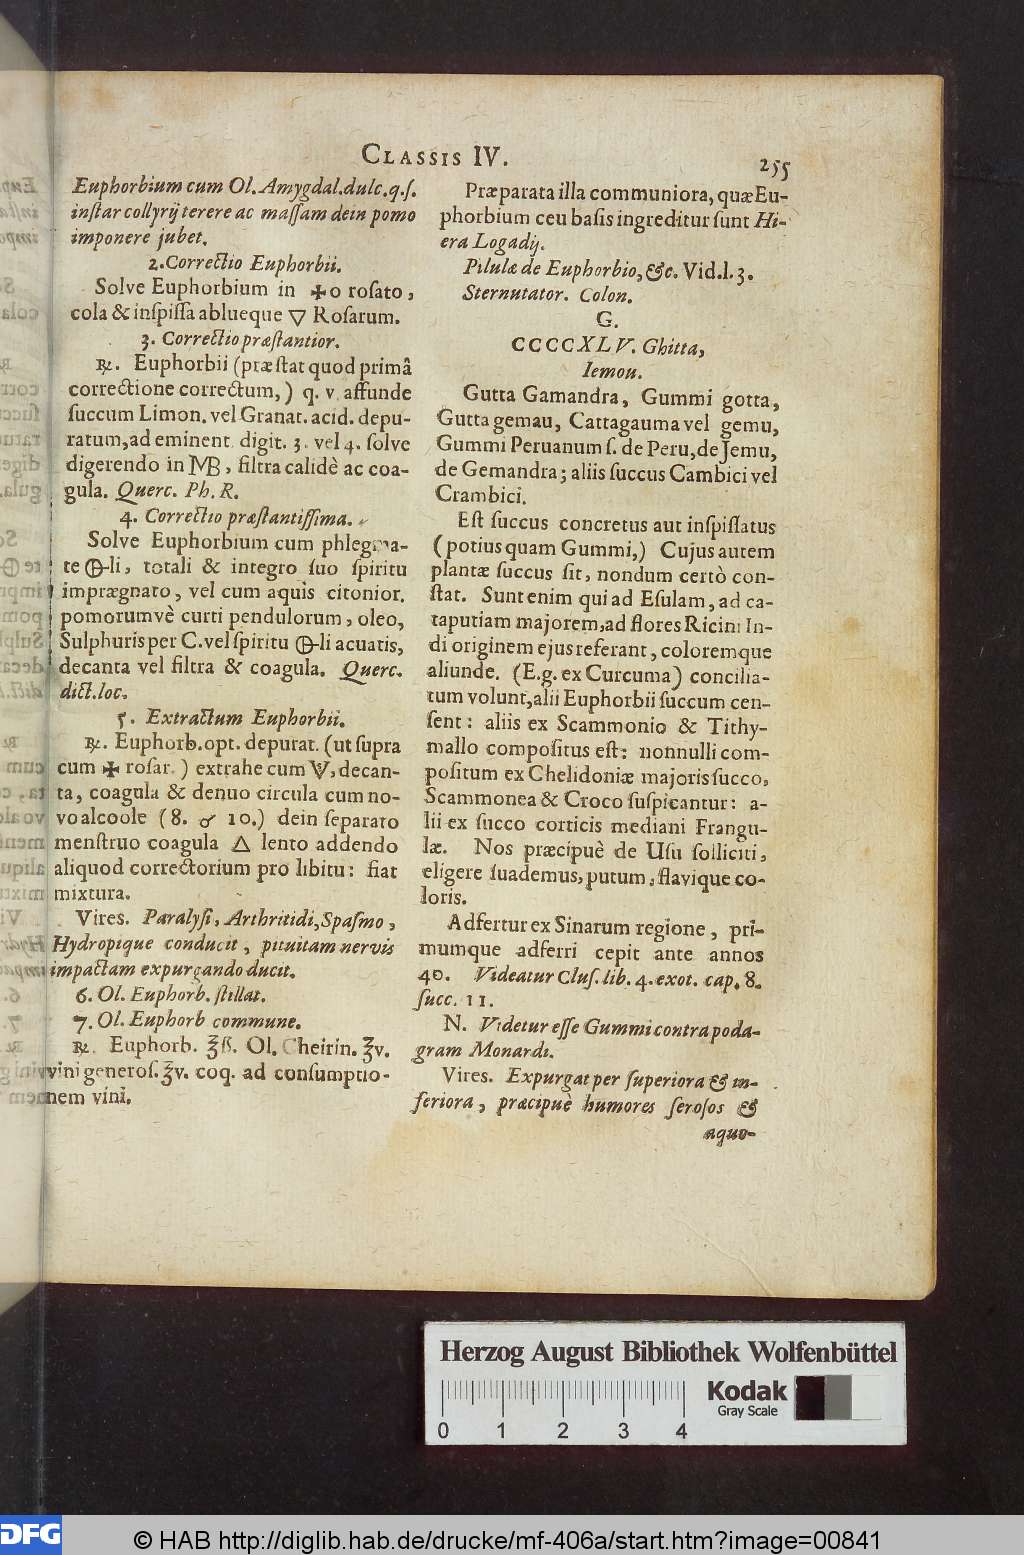 CLASSIS IV.
255
Euphorbium cum Ol. Amygdal. dulc. q. ſ.
inſtar collyrij terere ac maſſam dein pomo
imponere jubet.
2. Correctio Euphorbii.
Solve Euphorbium in ✠o roſato,
cola & inſpiſſa ablueque ▽ Roſarum.
3. Correctio præſtantior.
℞. Euphorbii (præſtat quod primâ
correctione correctum,) q. v. affunde
ſuccum Limon. vel Granat. acid. depu-
ratum, ad eminent. digit. 3. vel 4. ſolve
digerendo in MB, filtra calidè ac coa-
gula. Querc. Ph. R.
4. Correctio præſtantiſſima.
Solve Euphorbium cum phlegma-
te 🜖li, totali & integro ſuo ſpiritu
imprægnato, vel cum aquis citonior.
pomorumvè curti pendulorum, oleo,
Sulphuris per C. vel ſpiritu 🜖li acuatis,
decanta vel filtra & coagula. Querc.
dict. loc.
5. Extractum Euphorbii.
℞. Euphorb. opt. depurat. (ut ſupra
cum ✠ roſar.) extrahe cum V, decan-
ta, coagula & denuo circula cum no-
vo alcoole (8. ♂ 10.) dein ſeparato
menſtruo coagula △ lento addendo
aliquod correctorium pro libitu: fiat
mixtura.
Vires. Paralyſi, Arthritidi, Spaſmo,
Hydropique conducit, pituitam nervis
impactam expurgando ducit.
6. Ol. Euphorb. ſtillat.
7. Ol. Euphorb commune.
℞. Euphorb. ℥ß. Ol. Cheirin. ℥v.
vini generoſ. ℥v. coq. ad conſumptio-
nem vini.
Præparata illa communiora, quæ Eu-
phorbium ceu baſis ingreditur ſunt Hi-
era Logadij.
Pilulæ de Euphorbio, &c. Vid. l. 3.
Sternutator. Colon.
G.
CCCCXLV. Ghitta,
Iemou.
Gutta Gamandra, Gummi gotta,
Gutta gemau, Cattagauma vel gemu,
Gummi Peruanum ſ. de Peru, de Jemu,
de Gemandra; aliis ſuccus Cambici vel
Crambici.
Eſt ſuccus concretus aut inſpiſſatus
(potius quam Gummi,) Cujus autem
plantæ ſuccus ſit, nondum certò con-
ſtat. Sunt enim qui ad Eſulam, ad ca-
taputiam majorem, ad flores Ricini In-
di originem ejus referant, coloremque
aliunde. (E.g. ex Curcuma) concilia-
tum volunt, alii Euphorbii ſuccum cen-
ſent: aliis ex Scammonio & Tithy-
mallo compoſitus eſt: nonnulli com-
poſitum ex Chelidoniæ majoris ſucco,
Scammonea & Croco ſuſpicantur: a-
lii ex ſucco corticis mediani Frangu-
læ. Nos præcipuè de Uſu ſolliciti,
eligere ſuademus, putum, flavique co-
loris.
Adfertur ex Sinarum regione, pri-
mumque adferri cepit ante annos
40. Videatur Cluſ. lib. 4. exot. cap. 8.
ſucc. 11.
N. Videtur eſſe Gummi contra poda-
gram Monardi.
Vires. Expurgat per ſuperiora & in-
feriora, præcipuè humores ſeroſos &
aquo-
Herzog August Bibliothek Wolfenbüttel
Kodak
Gray Scale
0 1 2 3 4
DFG
© HAB http://diglib.hab.de/drucke/mf-406a/start.htm?image=00841